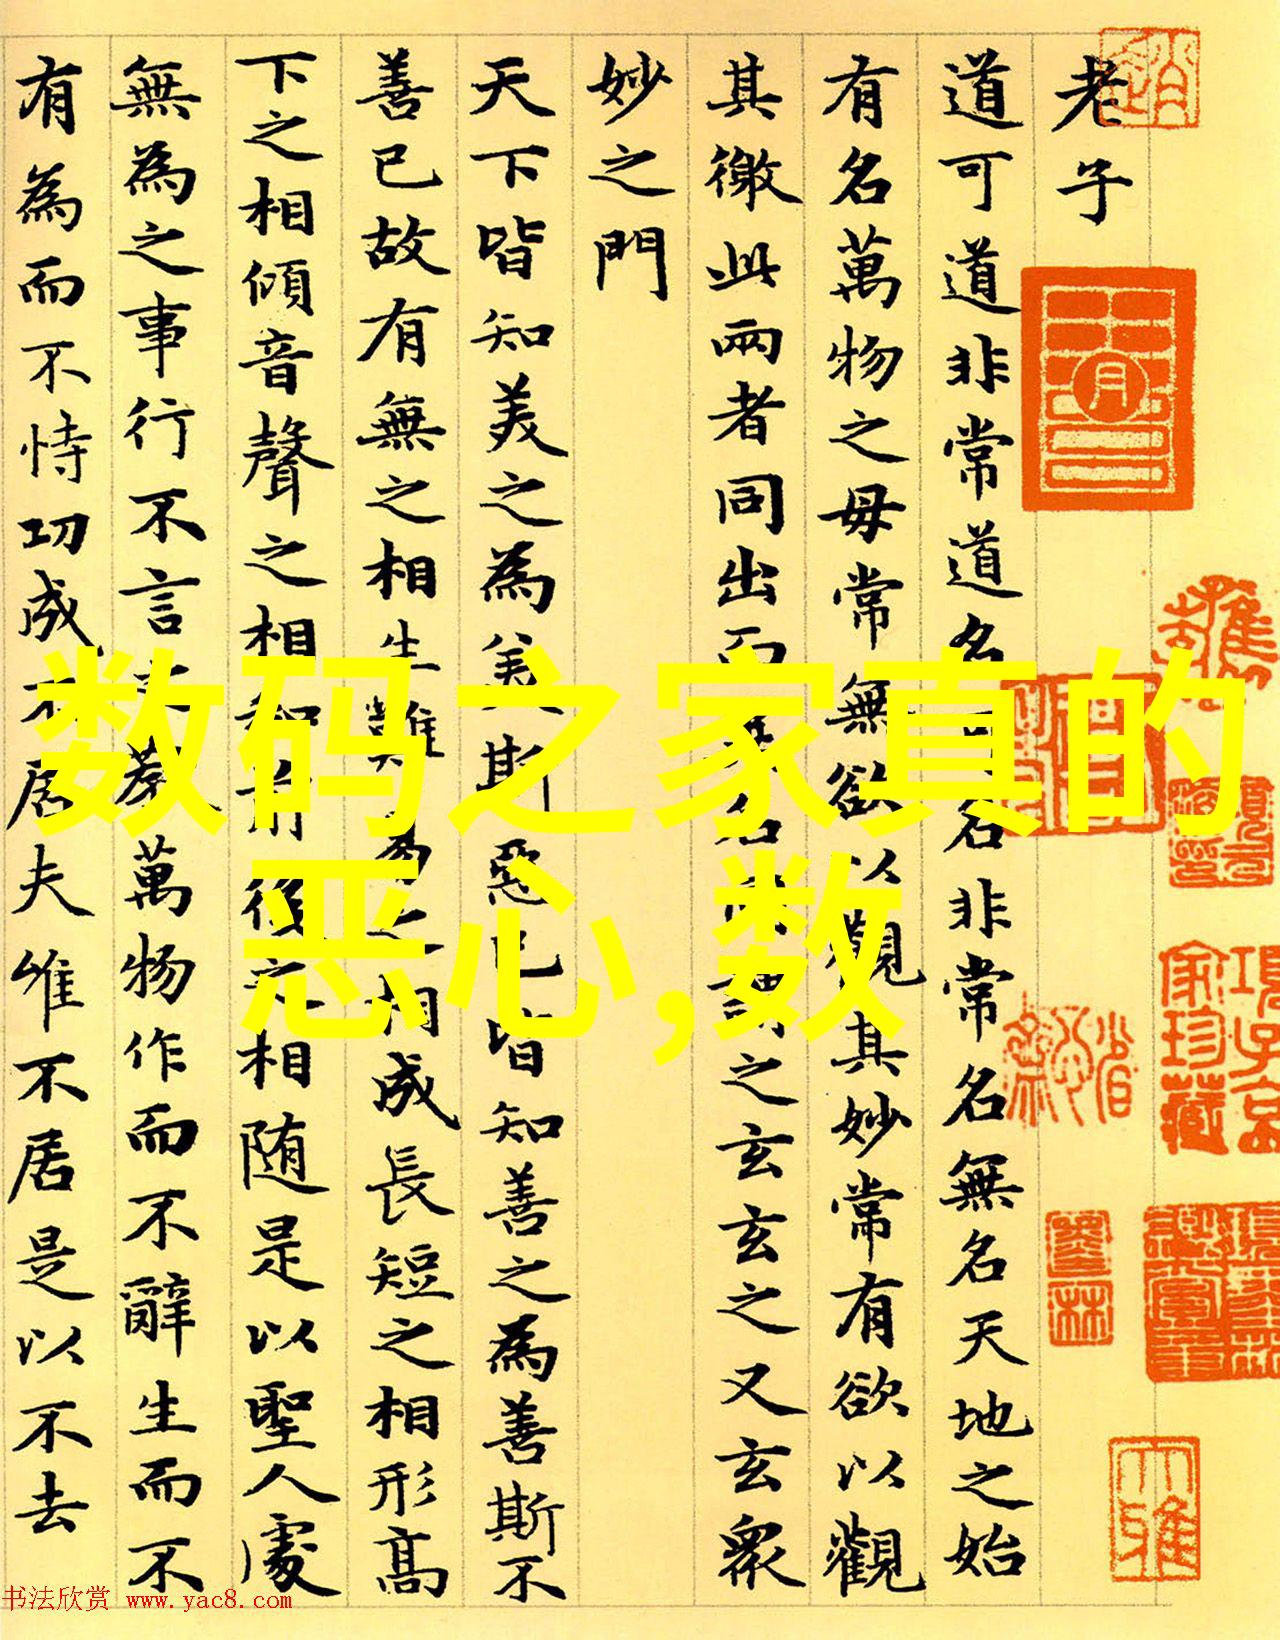 老子
道可道非常道名可名非常名無名天地之始
有名萬物之母常無欲以觀其妙常有欲以觀
其徼此兩者同出而異名同謂之玄玄之又玄衆
妙之門
天下皆知美之為美斯惡已皆知善之為善斯不
善已故有無之相生難易之相成長短之相形髙
下之相傾音聲之相和前後之相随是以聖人處
無為之事行不言之教萬物作而不辭生而不
有為而不恃功成不居夫惟不居是以不去
数码之家真的
恶心,数
項子京家珍藏
书法欣赏 www.yac8.com